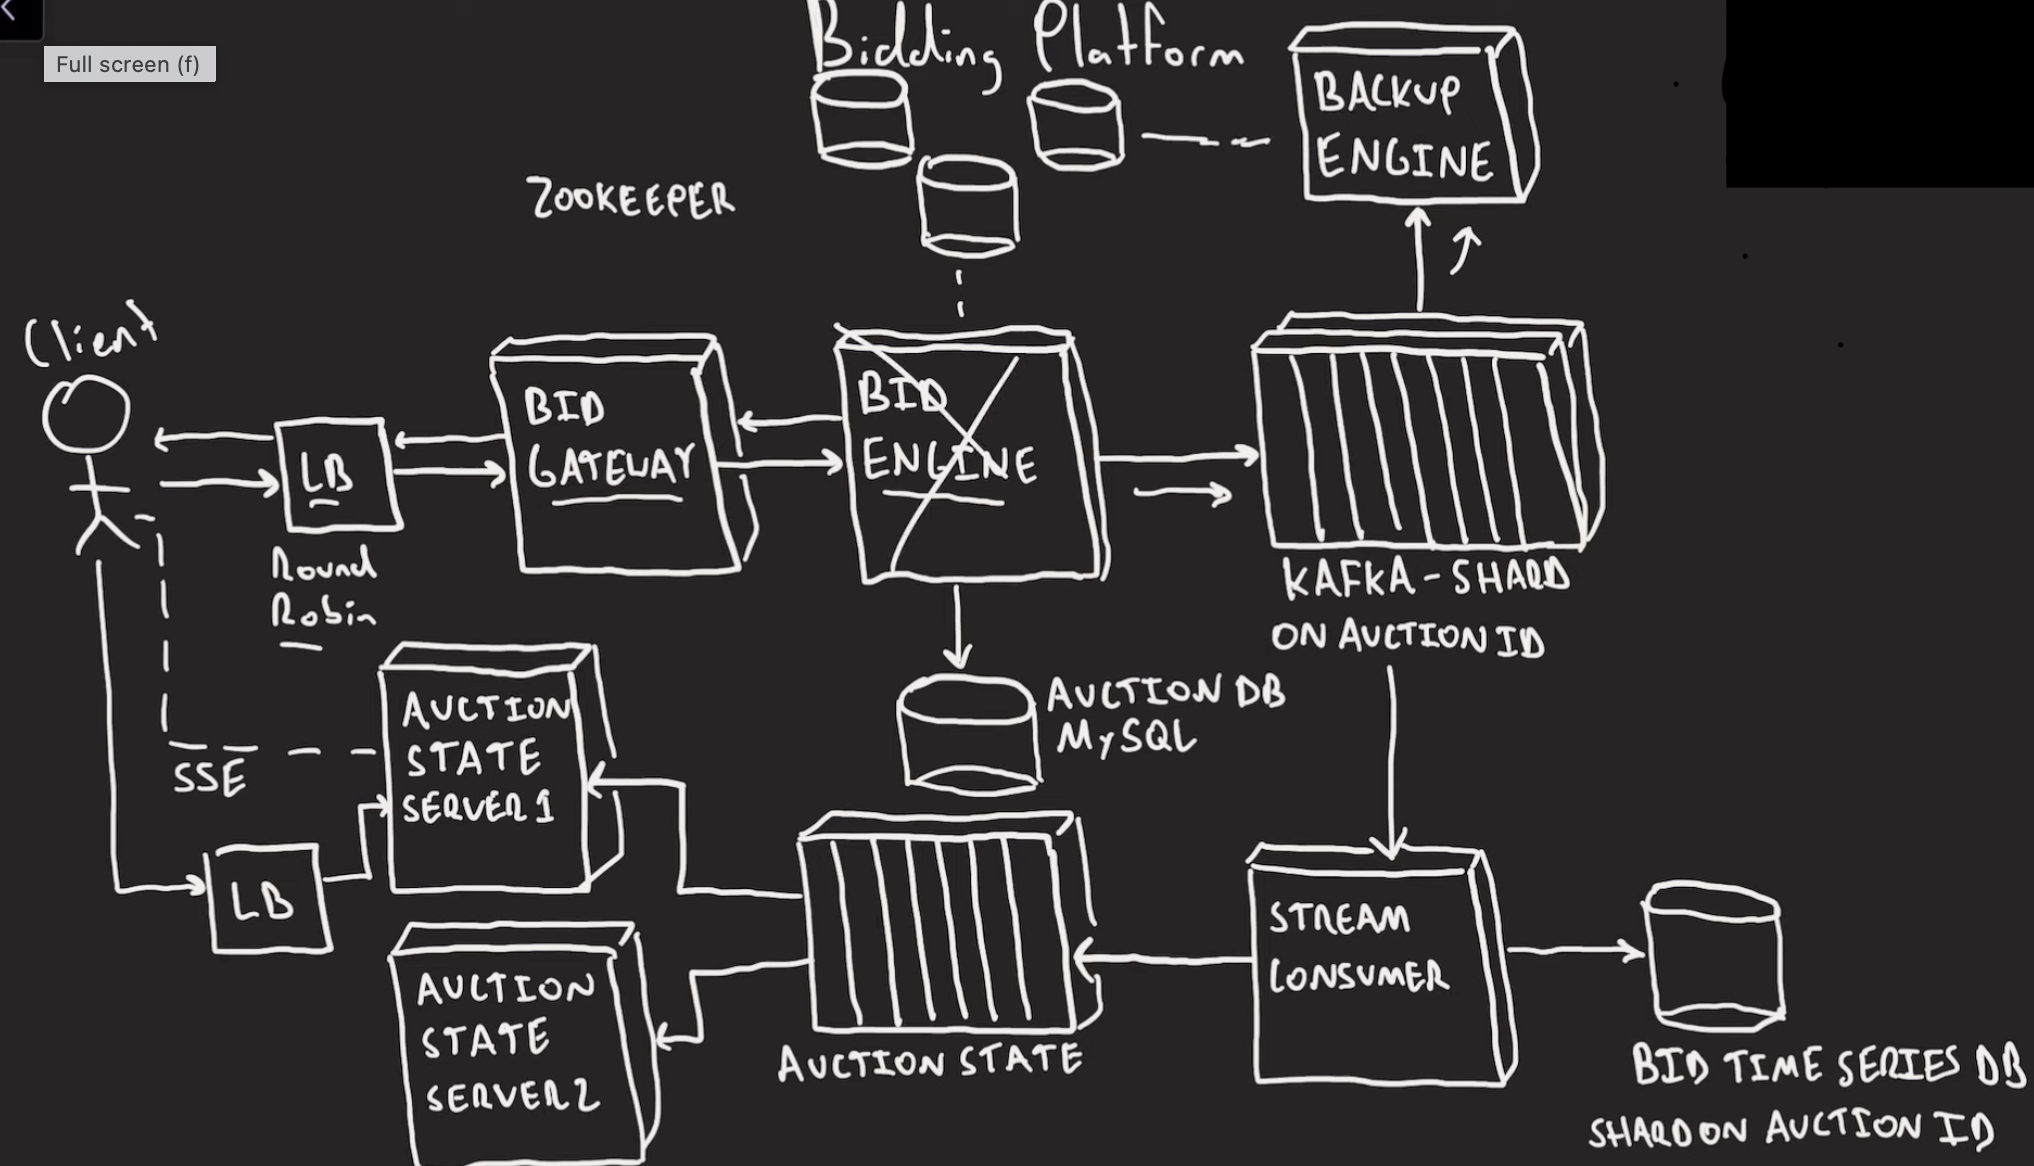 Full screen (f)
Bidding Platform
BACKUP
ENGINE
ZOOKEEPER
Client
LB
Round
Robin
BID
GATEWAY
BID
ENGINE
KAFKA-SHARD
ON AUCTION ID
AUCTION DB
MySQL
AUCTION
STATE
SERVER1
SSE
LB
AUCTION
STATE
SERVER2
AUCTION STATE
STREAM
CONSUMER
BID TIME SERIES DB
SHARD ON AUCTION ID